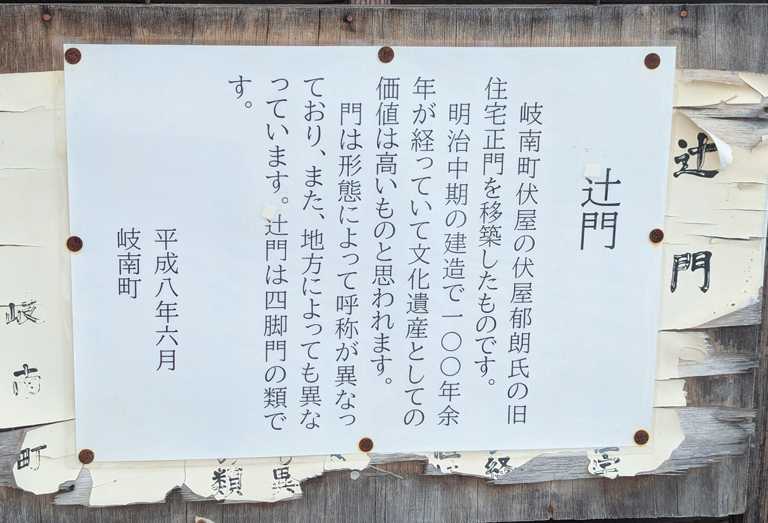 辻門
岐南町伏屋の伏屋郁朗氏の旧
住宅正門を移築したものです。
明治中期の建造で一〇〇年余
年が経っていて文化遺産としての
価値は高いものと思われます。
門は形態によって呼称が異なっ
ており、また、地方によっても異な
っています。辻門は四脚門の類で
す。
平成八年六月
岐南町
辻門
岐南町
類
異
経